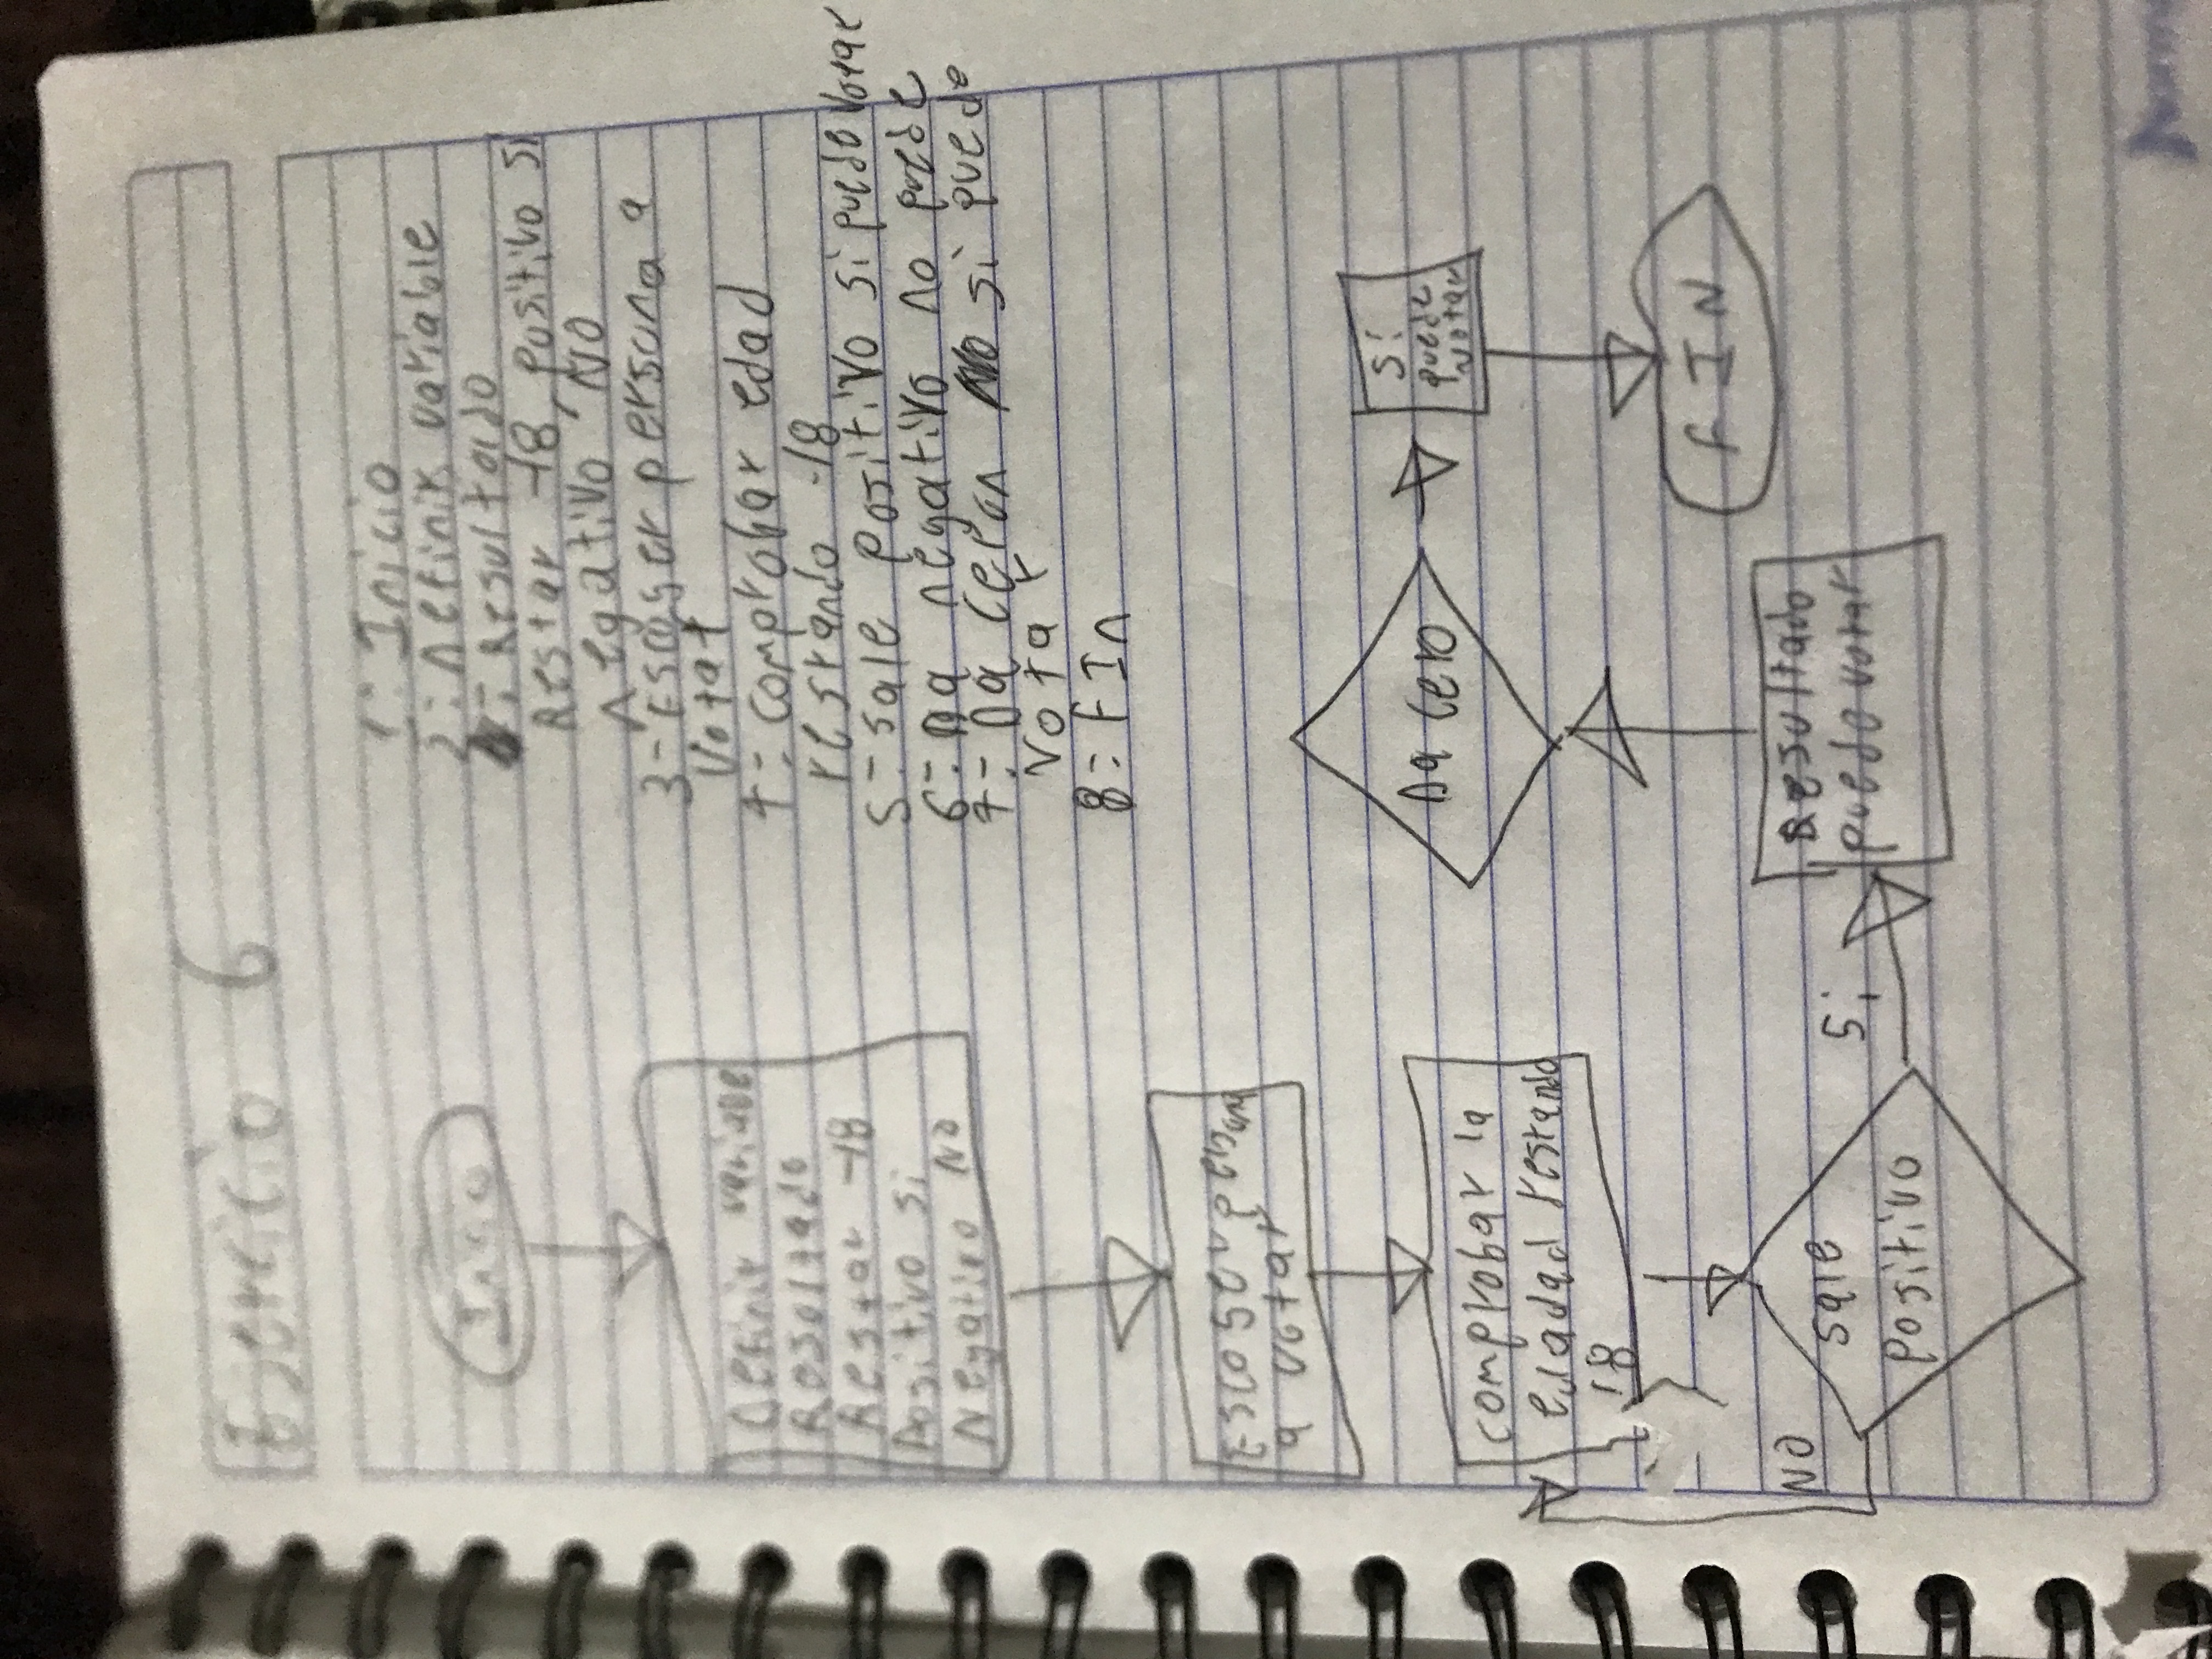 Ejercicio 6
1- Inicio
2- Definir variable
- Resultado
Restar -18, positivo si
Negativo, NO
3- Escoger persona a
Votar
4- Comprobar edad
restando -18
5- sale positivo si puede votar
6- Da negativo no puede
7- Da cero si puede
Votar
8- FIn
Inicio
Definir variable
Resultado
Restar -18
Positivo si
Negativo NO
a votar
comprobar la
edadad restando
18
sale
positivo
NO
Si
Resultado
puede votar
Da cero
Si
puede
votar
FIN